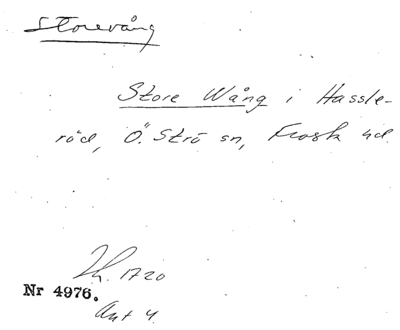 Storevång
Store Wång i Hassle-
röd, Ö. Strö sn, Frosk hd
Lh. 1720
Nr 4976.
Akt 4